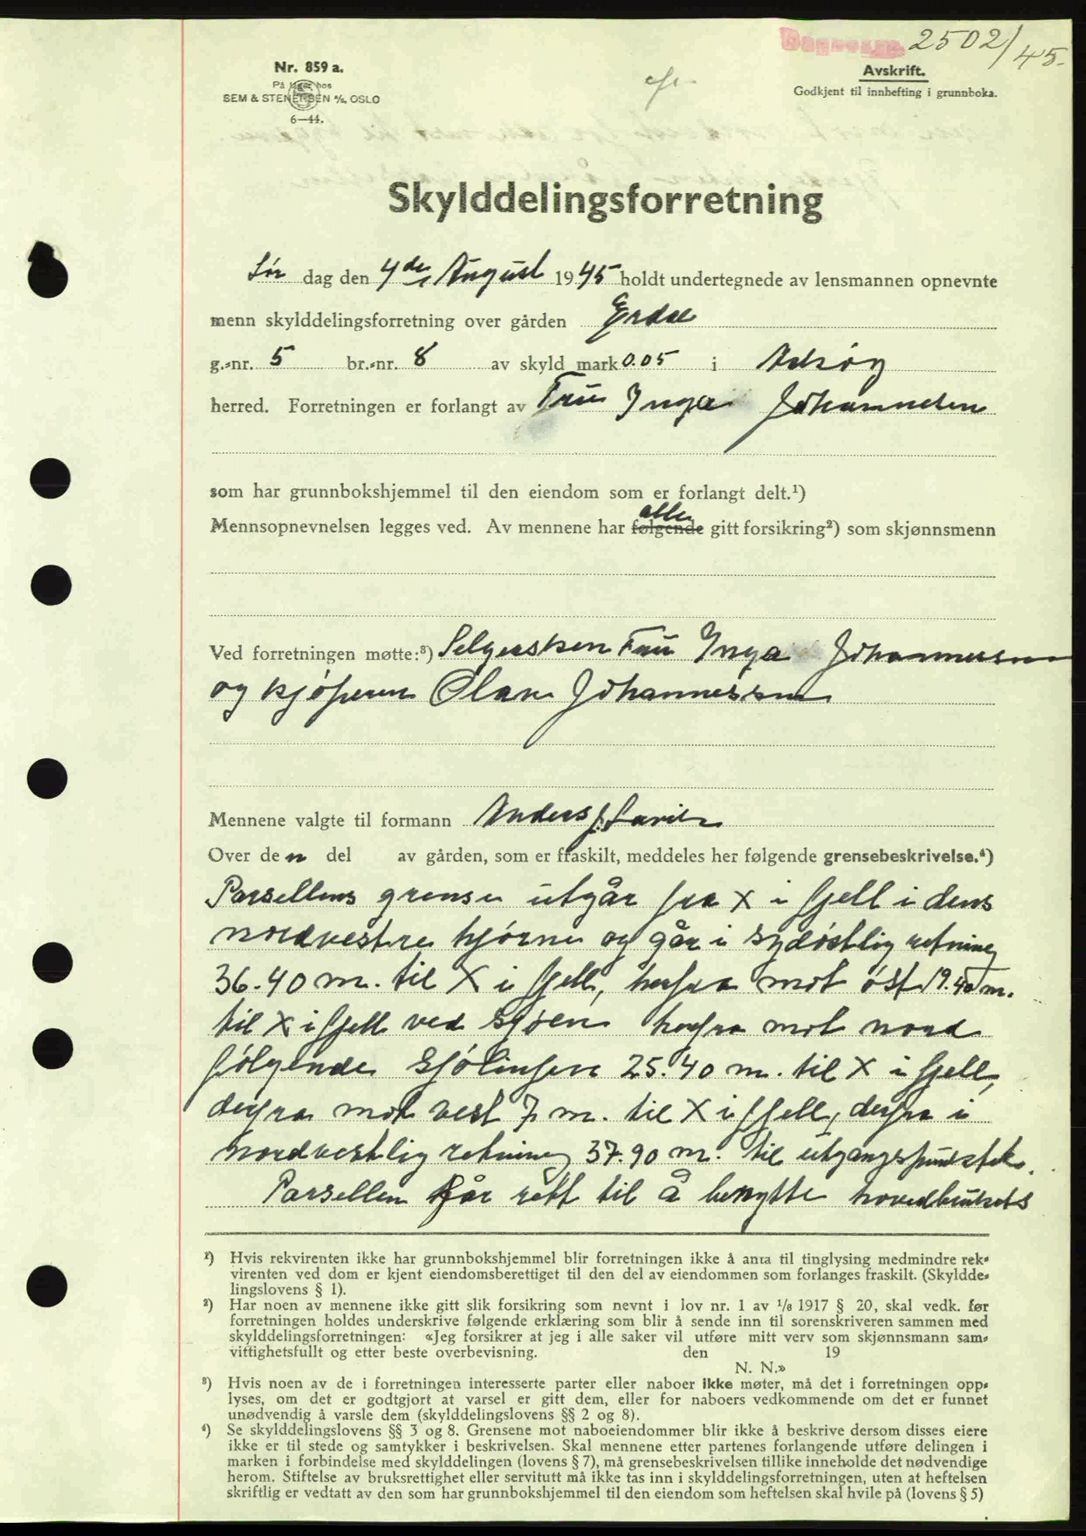 Dagbok nr. 2502/45.
Nr. 859 a.
På lager hos
SEM & STENERSEN A/S, OSLO
6-44.
Avskrift.
Godkjent til innhefting i grunnboka.
Skylddelingsforretning
Lør dag den 4de August 1945 holdt undertegnede av lensmannen opnevnte
menn skylddelingsforretning over gården Erdal
g.-nr. 5 br.-nr. 8 av skyld mark 0.05 i Askøy
herred. Forretningen er forlangt av Fru Inga Johannesen
som har grunnbokshjemmel til den eiendom som er forlangt delt.¹)
alle
Mennsopnevnelsen legges ved. Av mennene har følgende gitt forsikring²) som skjønnsmenn
Ved forretningen møtte:³) Selgersken Fru Inga Johannessen
og kjøperen Olav Johannessen
Mennene valgte til formann Anders J.
Over den del av gården, som er fraskilt, meddeles her følgende grensebeskrivelse.⁴)
Parsellens grense utgår fra X i fjell i dens
nordvestre hjørne og går i sydøstlig retning
36.40 m. til X i fjell, herfra mot øst 19.40 m.
til X i fjell ved sjøen herfra mot nord
følgende sjølinjen 25.40 m. til X i fjell,
derfra mot vest 7 m. til X i fjell, derfra i
nordvestlig retning 37.90 m. til utgangspunktet.
Parsellen får rett til å benytte hovedbrukets
¹) Hvis rekvirenten ikke har grunnbokshjemmel blir forretningen ikke å anta til tinglysing medmindre rek-
virenten ved dom er kjent eiendomsberettiget til den del av eiendommen som forlanges fraskilt. (Skyldde-
lingslovens § 1).
²) Har noen av mennene ikke gitt slik forsikring som nevnt i lov nr. 1 av 1/8 1917 § 20, skal vedk. før
forretningen holdes underskrive følgende erklæring som blir å sende inn til sorenskriveren sammen med
skylddelingsforretningen: «Jeg forsikrer at jeg i alle saker vil utføre mitt verv som skjønnsmann sam-
vittighetsfullt og etter beste overbevisning. den 19
N. N.»
³) Hvis noen av de i forretningen interesserte parter eller naboer ikke møter, må det i forretningen opp-
lyses, om det er godtgjort at varsel er gitt dem, eller for naboers vedkommende om det er funnet
unødvendig å varsle dem (skylddelingslovens §§ 2 og 8).
⁴) Se skylddelingslovens §§ 3 og 8. Grensene mot naboeiendommer blir ikke å beskrive dersom disses eiere
ikke er til stede og samtykker i beskrivelsen. Skal mennene etter partenes forlangende utføre delingen i
marken i forbindelse med skylddelingen (lovens § 7), må grensebeskrivelsen tillike inneholde det nødvendige
herom. Stiftelse av bruksrettighet eller servitutt må ikke tas inn i skylddelingsforretningen, uten at heftelsen
skriftlig er vedtatt av den som har grunnbokshjemmel til den eiendom som heftelsen skal hvile på (lovens § 5)